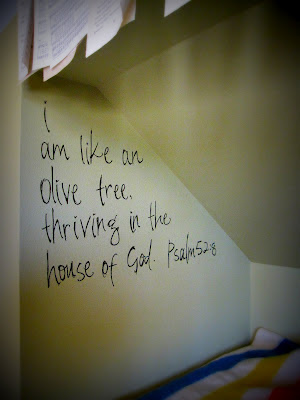 i
am like an
olive tree,
thriving in the
house of God. Psalm 52:8